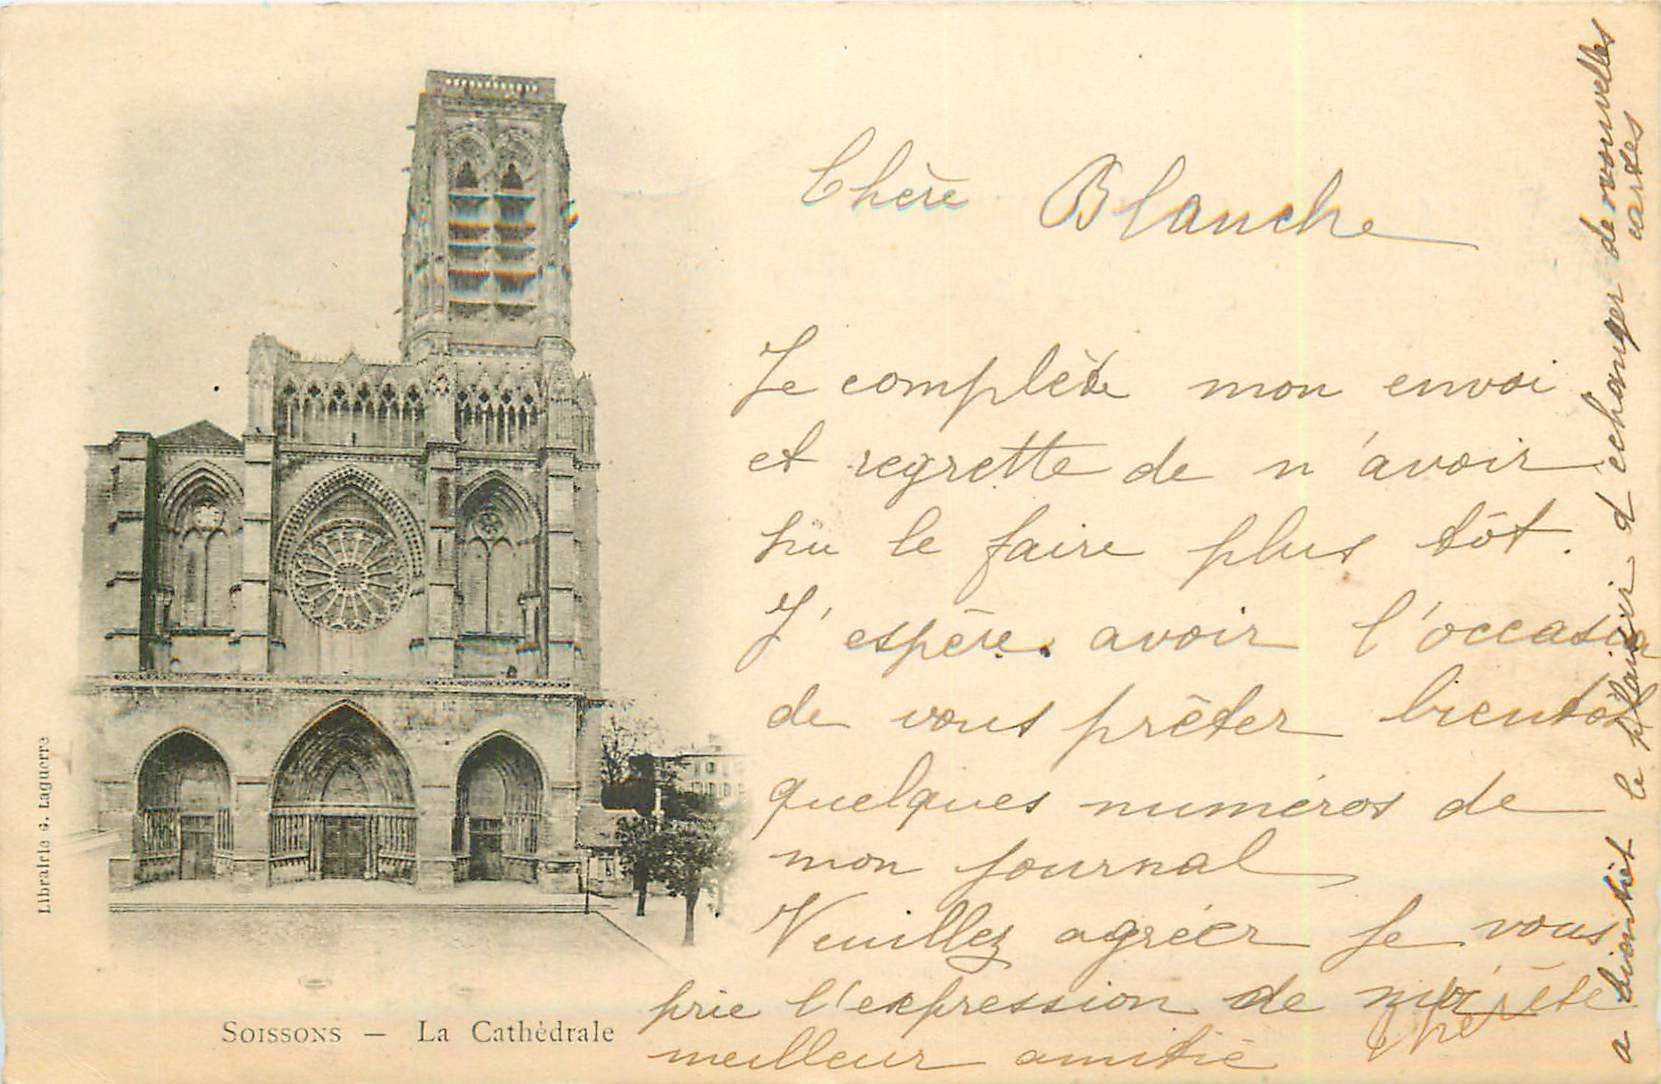 Chère Blanche
Je complète mon envoi
et regrette de n'avoir
pu le faire plus tôt.
J'espère avoir l'occasion
de vous prêter bientôt
quelques numéros de
mon journal
Veuillez agréer je vous
prie l'expression de ma
meilleur amitié
a bientôt le plaisir d'échanger de nouvelles
cartes
SOISSONS — La Cathédrale
Librairie G. Laguerre